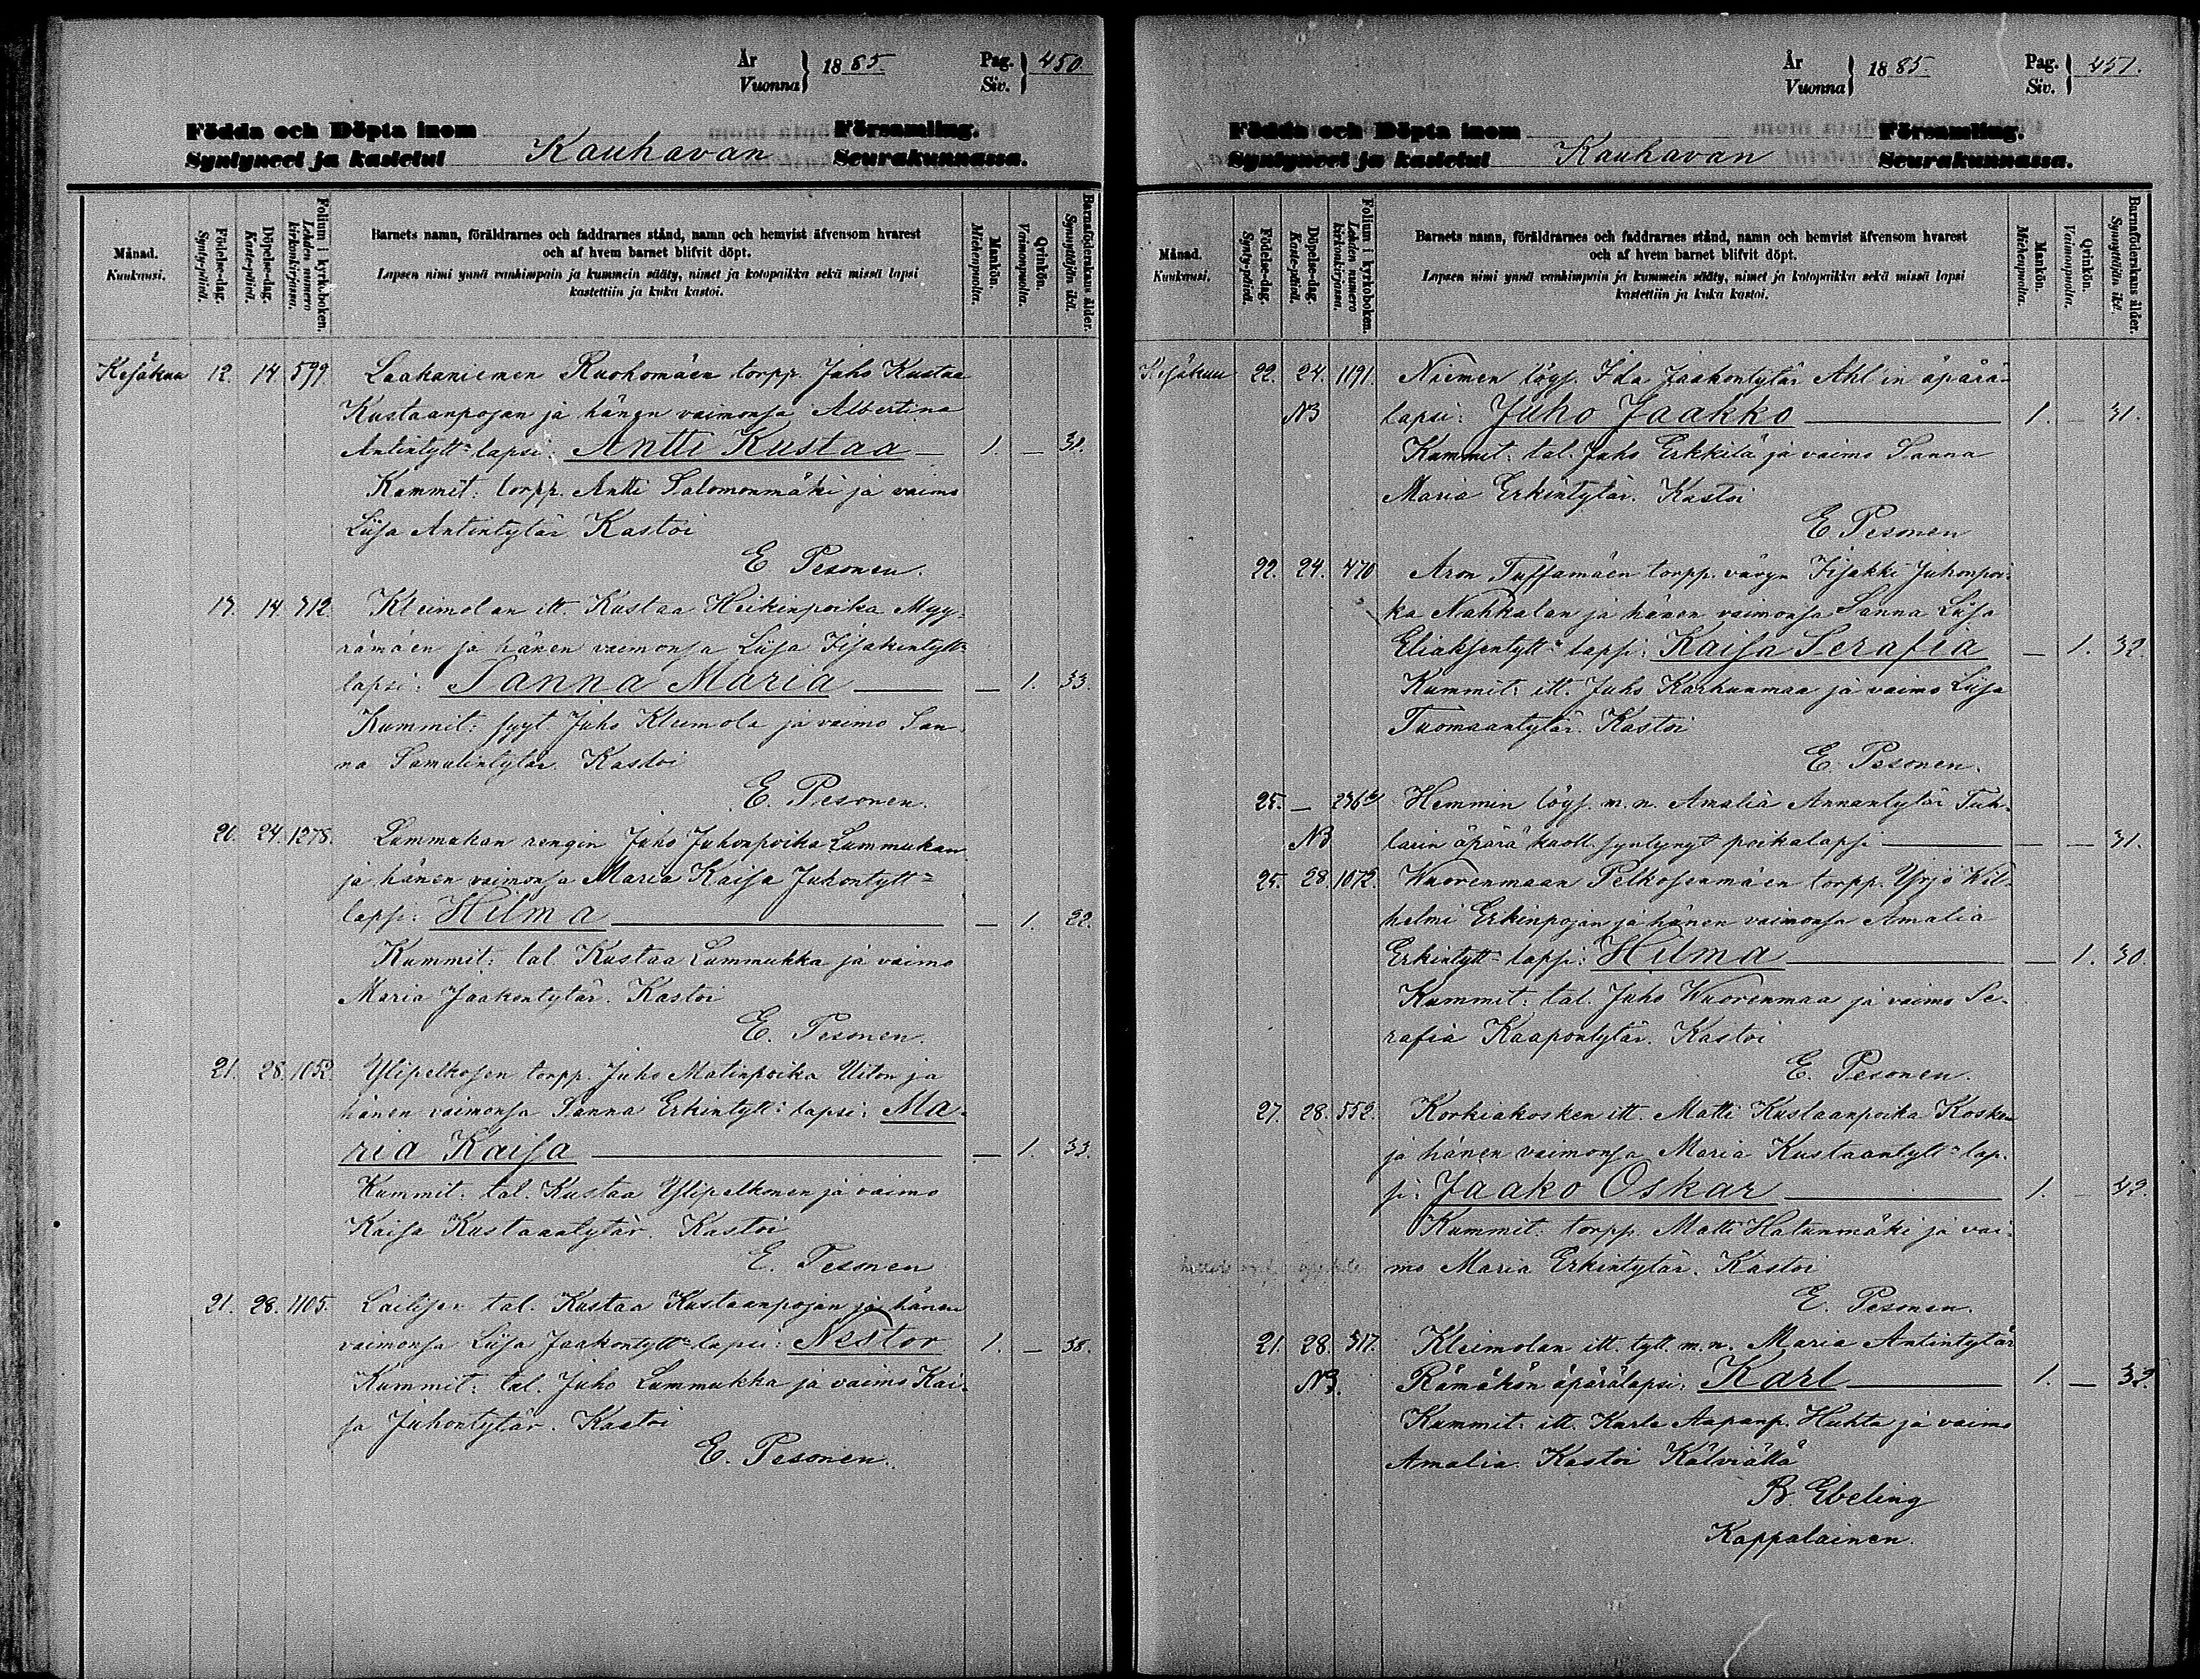 År
Vuonna } 1885
Pag.
Siv. } 450
Födda och Döpta inom Församling.
Syntyneet ja kastetut Kauhavan Seurakunnassa.
Månad.
Kuukausi.
Födelse-dag.
Synty-päivä.
Döpelse-dag.
Kaste-päivä.
Folium i kyrkoboken.
Lehden numero kirkonkirjassa.
Barnets namn, föräldrarnes och faddrarnes stånd, namn och hemvist äfvensom hvarest
och af hvem barnet blifvit döpt.
Lapsen nimi ynnä vanhimpain ja kummein sääty, nimet ja kotopaikka sekä missä lapsi
kastettiin ja kuka kastoi.
Mankön.
Miehenpuolta.
Qvinkön.
Vaimonpuolta.
Barnaföderskans ålder.
Synnyttäjän ikä.
Kesäkuu 12. 14. 599. Laakaniemen Ruohomäen torpp. Juho Kustaa
Kustaanpojan ja hänen vaimonsa Albertina
Antintytt= lapsi: Antti Kustaa — 1. —
Kummit: torpp. Antti Salomonmäki ja vaimo
Liisa Antintytär Kastoi
E Pesonen.
14. 712. Kleimolan itt. Kustaa Heikinpoika Myy-
rämäen ja hänen vaimonsa Liisa Iisakintytt=
lapsi: Sanna Maria — — 1. 33.
Kummit: syyt. Juho Kleimola ja vaimo San-
na Samulintytär. Kastoi
E. Pesonen.
20. 24. 1278. Lummukan rengin Juho Juhonpoika Lummukan
ja hänen vaimonsa Maria Kaisa Juhontytt=
lapsi: Hilma — — 1. 22.
Kummit: tal. Kustaa Lummukka ja vaimo
Maria Jaakontytär. Kastoi
E. Pesonen.
21. 28. 1052. Ylipelkosen torpp. Juho Matinpoika Uiton ja
hänen vaimonsa Sanna Erkintytt= lapsi: Ma-
ria Kaisa — — 1. 33.
Kummit: tal. Kustaa Ylipelkonen ja vaimo
Kaisa Kustaantytär. Kastoi
E. Pesonen
21. 28. 1105. Laitisen tal. Kustaa Kustaanpojan ja hänen
vaimonsa Liisa Jaakontytt= lapsi: Nestor 1. — 38.
Kummit: tal. Juho Lummukka ja vaimo Kai-
sa Juhontytär. Kastoi
E. Pesonen.
År
Vuonna } 1885
Pag.
Siv. } 451.
Födda och Döpta inom Församling.
Syntyneet ja kastetut Kauhavan Seurakunnassa.
Månad.
Kuukausi.
Födelse-dag.
Synty-päivä.
Döpelse-dag.
Kaste-päivä.
Folium i kyrkoboken.
Lehden numero kirkonkirjassa.
Barnets namn, föräldrarnes och faddrarnes stånd, namn och hemvist äfvensom hvarest
och af hvem barnet blifvit döpt.
Lapsen nimi ynnä vanhimpain ja kummein sääty, nimet ja kotopaikka sekä missä lapsi
kastettiin ja kuka kastoi.
Mankön.
Miehenpuolta.
Qvinkön.
Vaimonpuolta.
Barnaföderskans ålder.
Synnyttäjän ikä.
Kesäkuu 22. 24. 1191. Niemen löys. Ida Jaakontytär Ahl'in äpärä-
NB lapsi: Juho Jaakko — 1. — 31.
Kummit: tal. Juho Erkkilä ja vaimo Sanna
Maria Erkintytär. Kastoi
E Pesonen
22. 24. 470 Aron Tussamäen torpp. vävyn Iisakki Juhonpoi-
ka Nahkalan ja hänen vaimonsa Sanna Liisa
Eliaksentytt= lapsi: Kaisa Serafia — 1. 32.
Kummit: itt. Juho Karhunmaa ja vaimo Liisa
Tuomaantytär. Kastoi
E. Pesonen.
25. — Hemmin löys. m. n. Amalia Annantytär Tuh-
NB larin äpärä kuoll. syntynyt poikalapsi — — — 31.
25. 28. 1072. Wuorenmaan Pelkosenmäen torpp. Yrjö Wil-
helmi Erkinpojan ja hänen vaimonsa Amalia
Erkintytt= lapsi: Hilma — — 1. 30.
Kummit: tal. Juho Wuorenmaa ja vaimo Se-
rafia Kaapontytär. Kastoi
E. Pesonen.
27. 28. 552. Korkiakosken itt. Matti Kustaanpoika Kosken
ja hänen vaimonsa Maria Kustaantytt= lap-
si: Jaako Oskar — 1. — 42.
Kummit: torpp. Matti Hatunmäki ja vai-
mo Maria Erkintytär. Kastoi
E. Pesonen.
21. 28. 317. Kleimolan itt. tytt. m. n. Maria Antintytär
NB. Rämäkön äpärälapsi: Karl — 1. — 32.
Kummit: itt. Karle Aapanp. Huhta ja vaimo
Amalia. Kastoi Kälviällä
B. Ebeling
Kappalainen.